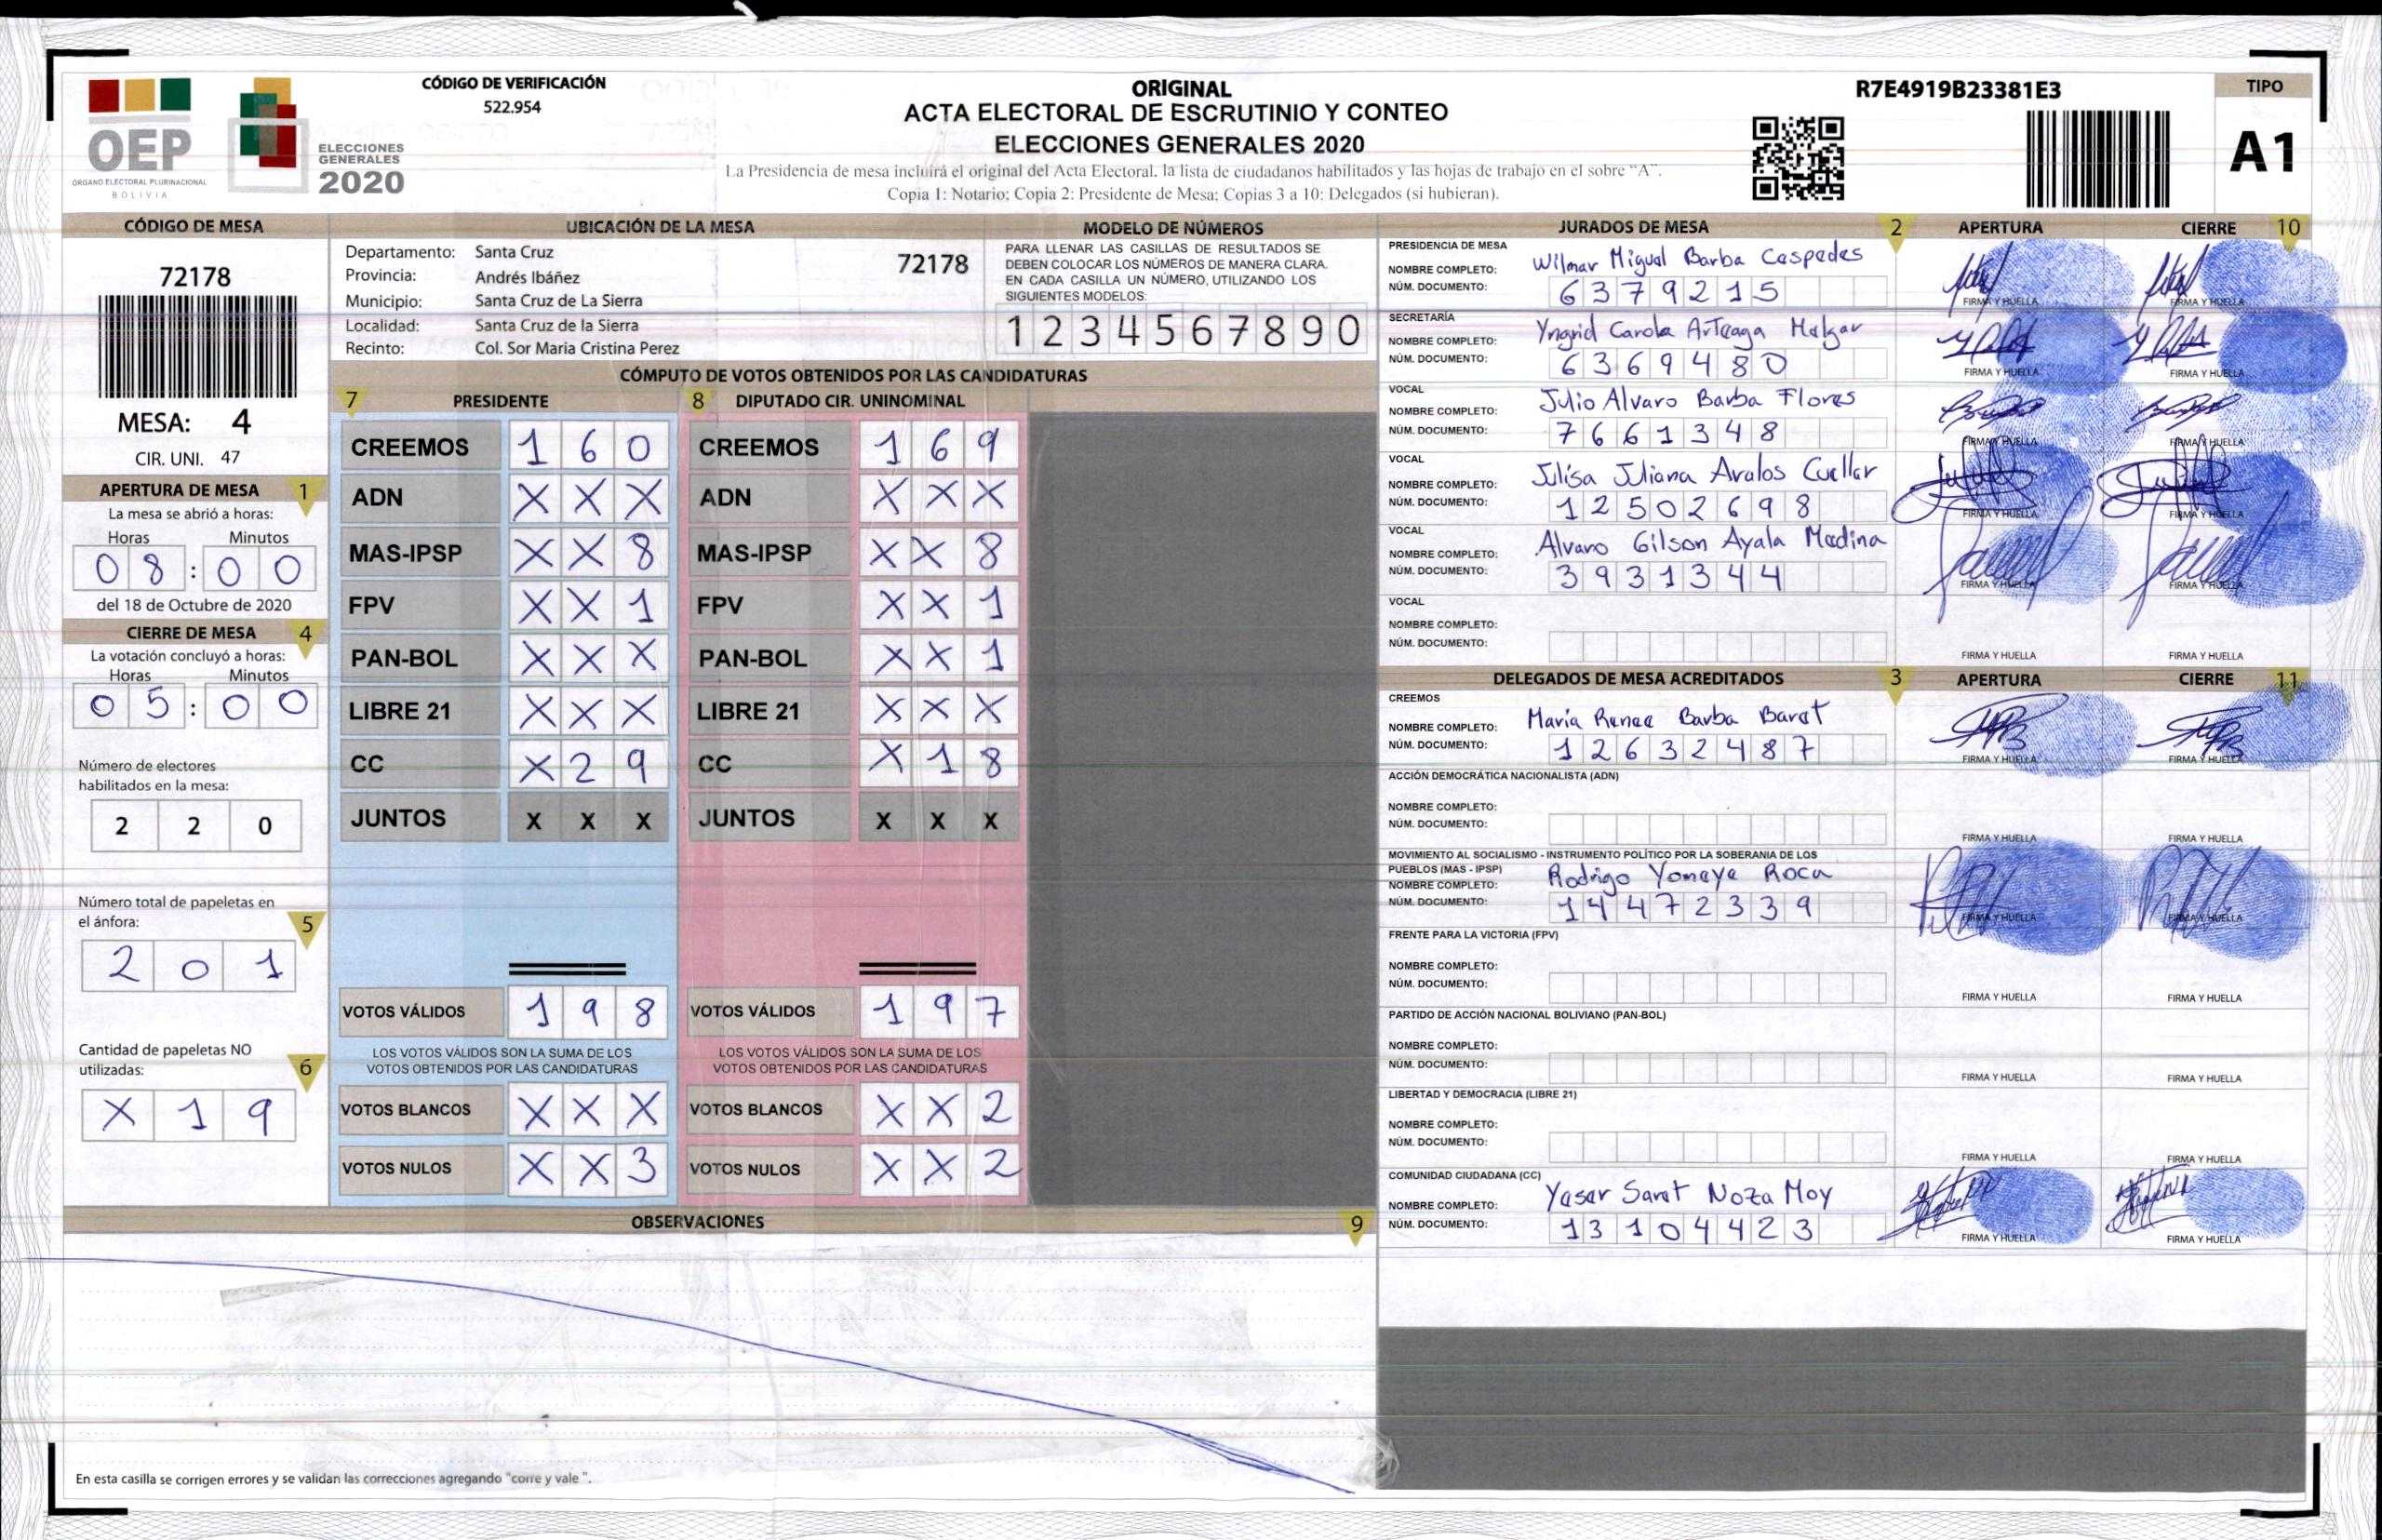 OEP
ÓRGANO ELECTORAL PLURINACIONAL
BOLIVIA
ELECCIONES
GENERALES
2020
CÓDIGO DE VERIFICACIÓN
522.954
ORIGINAL
ACTA ELECTORAL DE ESCRUTINIO Y CONTEO
ELECCIONES GENERALES 2020
La Presidencia de mesa incluirá el original del Acta Electoral, la lista de ciudadanos habilitados y las hojas de trabajo en el sobre “A”.
Copia 1: Notario; Copia 2: Presidente de Mesa; Copias 3 a 10: Delegados (si hubieran).
R7E4919B23381E3
TIPO
A1
CÓDIGO DE MESA
72178
MESA: 4
CIR. UNI. 47
APERTURA DE MESA 1
La mesa se abrió a horas:
Horas Minutos
08:00
del 18 de Octubre de 2020
CIERRE DE MESA 4
La votación concluyó a horas:
Horas Minutos
05:00
Número de electores
habilitados en la mesa:
2 2 0
Número total de papeletas en
el ánfora: 5
2 0 1
Cantidad de papeletas NO
utilizadas: 6
X 1 9
UBICACIÓN DE LA MESA
Departamento: Santa Cruz
72178
Provincia: Andrés Ibáñez
Municipio: Santa Cruz de La Sierra
Localidad: Santa Cruz de la Sierra
Recinto: Col. Sor Maria Cristina Perez
MODELO DE NÚMEROS
PARA LLENAR LAS CASILLAS DE RESULTADOS SE
DEBEN COLOCAR LOS NÚMEROS DE MANERA CLARA.
EN CADA CASILLA UN NÚMERO, UTILIZANDO LOS
SIGUIENTES MODELOS:
1 2 3 4 5 6 7 8 9 0
CÓMPUTO DE VOTOS OBTENIDOS POR LAS CANDIDATURAS
7 PRESIDENTE 8 DIPUTADO CIR. UNINOMINAL
CREEMOS 1 6 0 CREEMOS 1 6 9
ADN X X X ADN X X X
MAS-IPSP X X 8 MAS-IPSP X X 8
FPV X X 1 FPV X X 1
PAN-BOL X X X PAN-BOL X X 1
LIBRE 21 X X X LIBRE 21 X X X
CC X 2 9 CC X 1 8
JUNTOS X X X JUNTOS X X X
VOTOS VÁLIDOS 1 9 8 VOTOS VÁLIDOS 1 9 7
LOS VOTOS VÁLIDOS SON LA SUMA DE LOS LOS VOTOS VÁLIDOS SON LA SUMA DE LOS
VOTOS OBTENIDOS POR LAS CANDIDATURAS VOTOS OBTENIDOS POR LAS CANDIDATURAS
VOTOS BLANCOS X X X VOTOS BLANCOS X X 2
VOTOS NULOS X X 3 VOTOS NULOS X X 2
OBSERVACIONES 9
En esta casilla se corrigen errores y se validan las correcciones agregando "corre y vale ".
JURADOS DE MESA 2 APERTURA CIERRE 10
PRESIDENCIA DE MESA
NOMBRE COMPLETO: Wilmar Migual Barba Caspedes
NÚM. DOCUMENTO: 6379215
FIRMA Y HUELLA FIRMA Y HUELLA
SECRETARÍA
NOMBRE COMPLETO: Yngrid Carola Arteaga Melgar
NÚM. DOCUMENTO: 6369480
FIRMA Y HUELLA FIRMA Y HUELLA
VOCAL
NOMBRE COMPLETO: Julio Alvaro Barba Flores
NÚM. DOCUMENTO: 7661348
FIRMA Y HUELLA FIRMA Y HUELLA
VOCAL
NOMBRE COMPLETO: Julisa Juliana Avalos Cuellar
NÚM. DOCUMENTO: 12502698
FIRMA Y HUELLA FIRMA Y HUELLA
VOCAL
NOMBRE COMPLETO: Alvaro Gilson Ayala Medina
NÚM. DOCUMENTO: 3931344
FIRMA Y HUELLA FIRMA Y HUELLA
VOCAL
NOMBRE COMPLETO:
NÚM. DOCUMENTO:
FIRMA Y HUELLA FIRMA Y HUELLA
DELEGADOS DE MESA ACREDITADOS 3 APERTURA CIERRE 11
CREEMOS
NOMBRE COMPLETO: Maria Renee Barba Barat
NÚM. DOCUMENTO: 12632487
FIRMA Y HUELLA FIRMA Y HUELLA
ACCIÓN DEMOCRÁTICA NACIONALISTA (ADN)
NOMBRE COMPLETO:
NÚM. DOCUMENTO:
FIRMA Y HUELLA FIRMA Y HUELLA
MOVIMIENTO AL SOCIALISMO - INSTRUMENTO POLÍTICO POR LA SOBERANIA DE LOS
PUEBLOS (MAS - IPSP)
NOMBRE COMPLETO: Rodrigo Yomaye Roca
NÚM. DOCUMENTO: 14472339
FIRMA Y HUELLA FIRMA Y HUELLA
FRENTE PARA LA VICTORIA (FPV)
NOMBRE COMPLETO:
NÚM. DOCUMENTO:
FIRMA Y HUELLA FIRMA Y HUELLA
PARTIDO DE ACCIÓN NACIONAL BOLIVIANO (PAN-BOL)
NOMBRE COMPLETO:
NÚM. DOCUMENTO:
FIRMA Y HUELLA FIRMA Y HUELLA
LIBERTAD Y DEMOCRACIA (LIBRE 21)
NOMBRE COMPLETO:
NÚM. DOCUMENTO:
FIRMA Y HUELLA FIRMA Y HUELLA
COMUNIDAD CIUDADANA (CC)
NOMBRE COMPLETO: Yasar Sarat Noza Moy
NÚM. DOCUMENTO: 13104423
FIRMA Y HUELLA FIRMA Y HUELLA